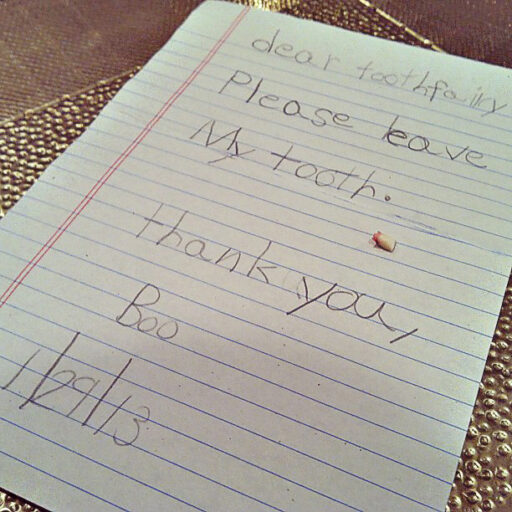 dear toothfairy
Please leave
My tooth.
thank you,
Boo
1/29/13